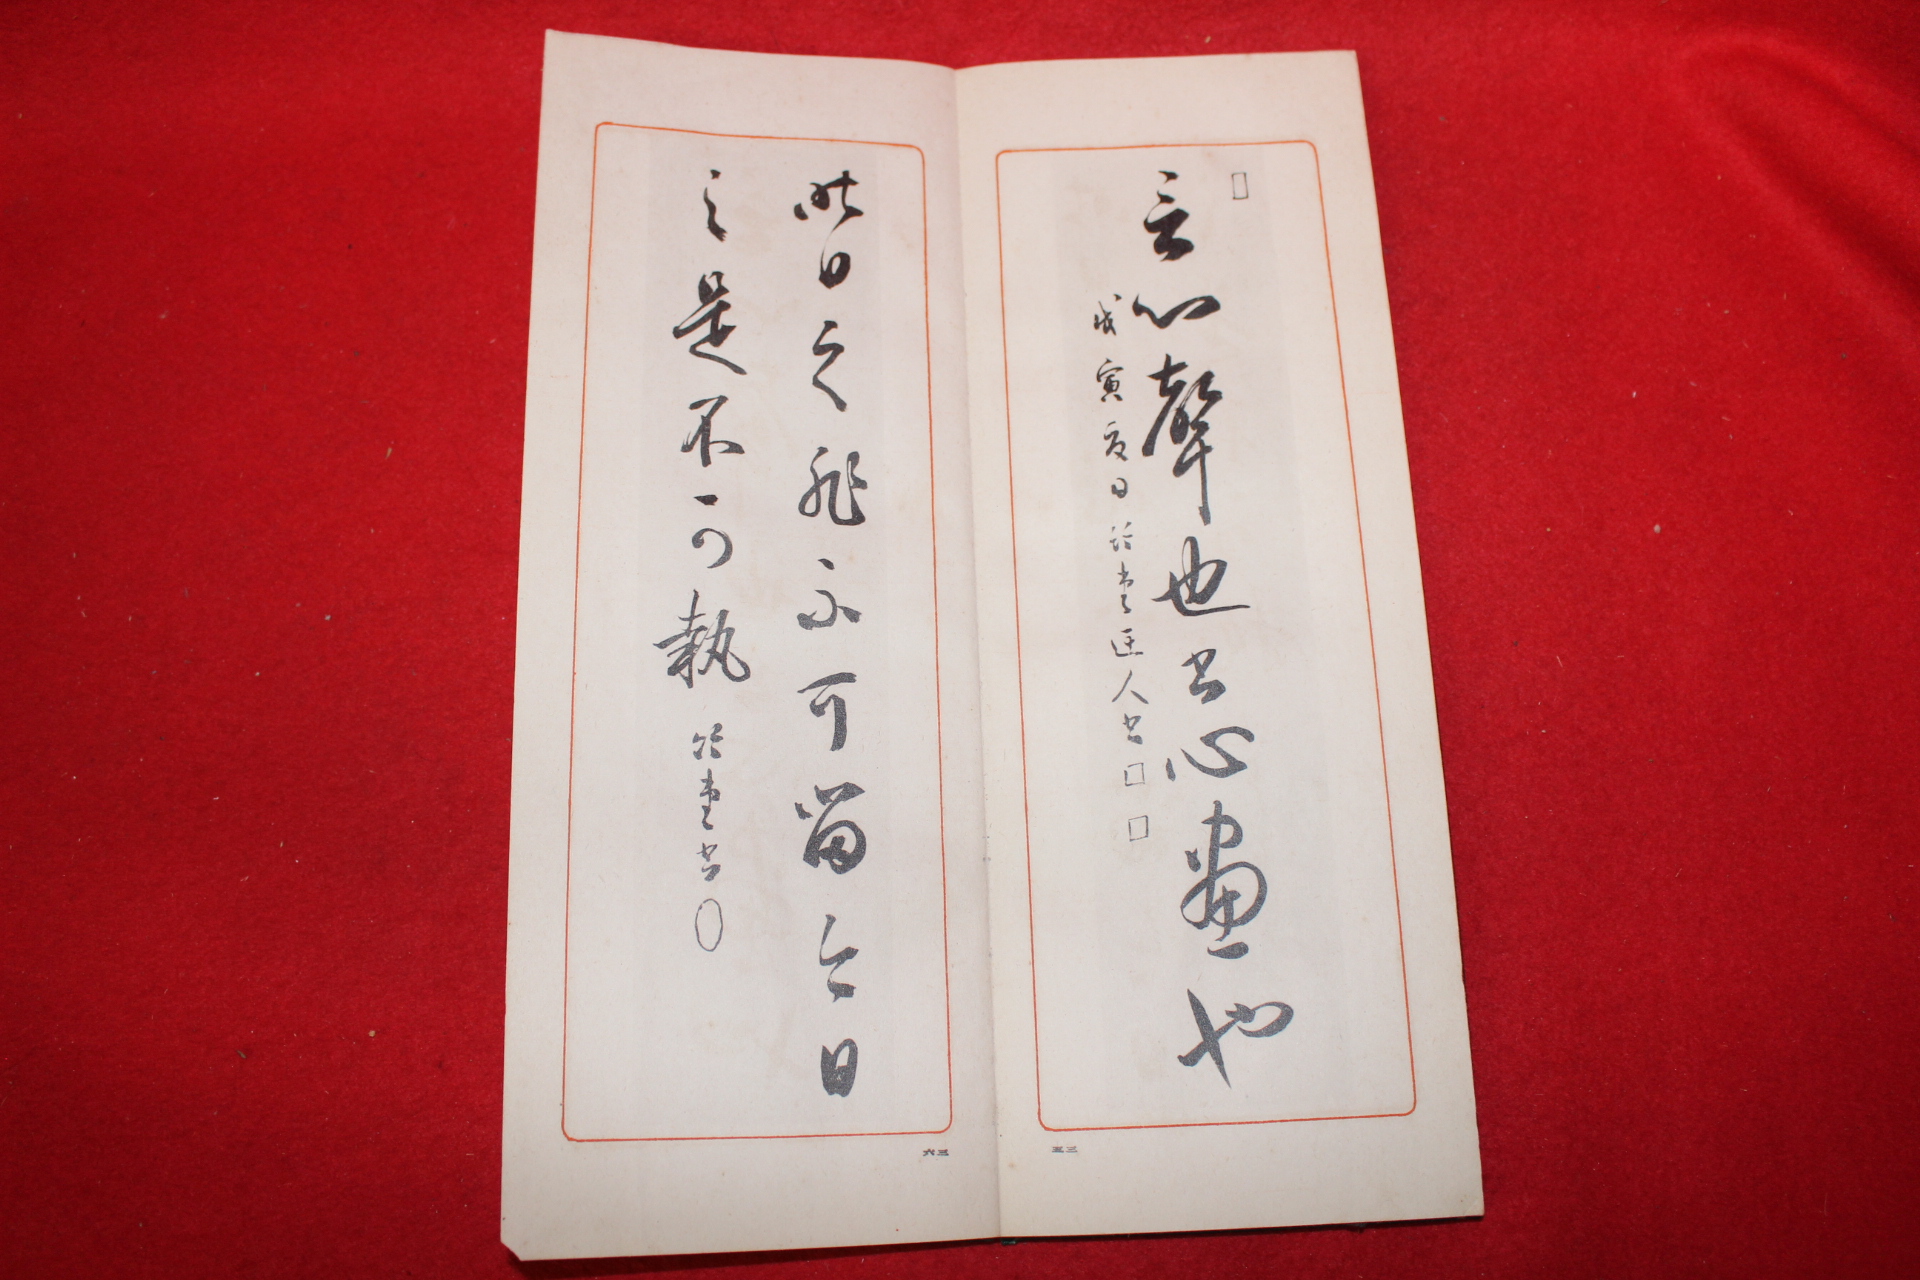 言心聲也書心畫也
戊寅夏日堂人書
三五
昨日之非不可留今日
之是不可執 堂書
三六